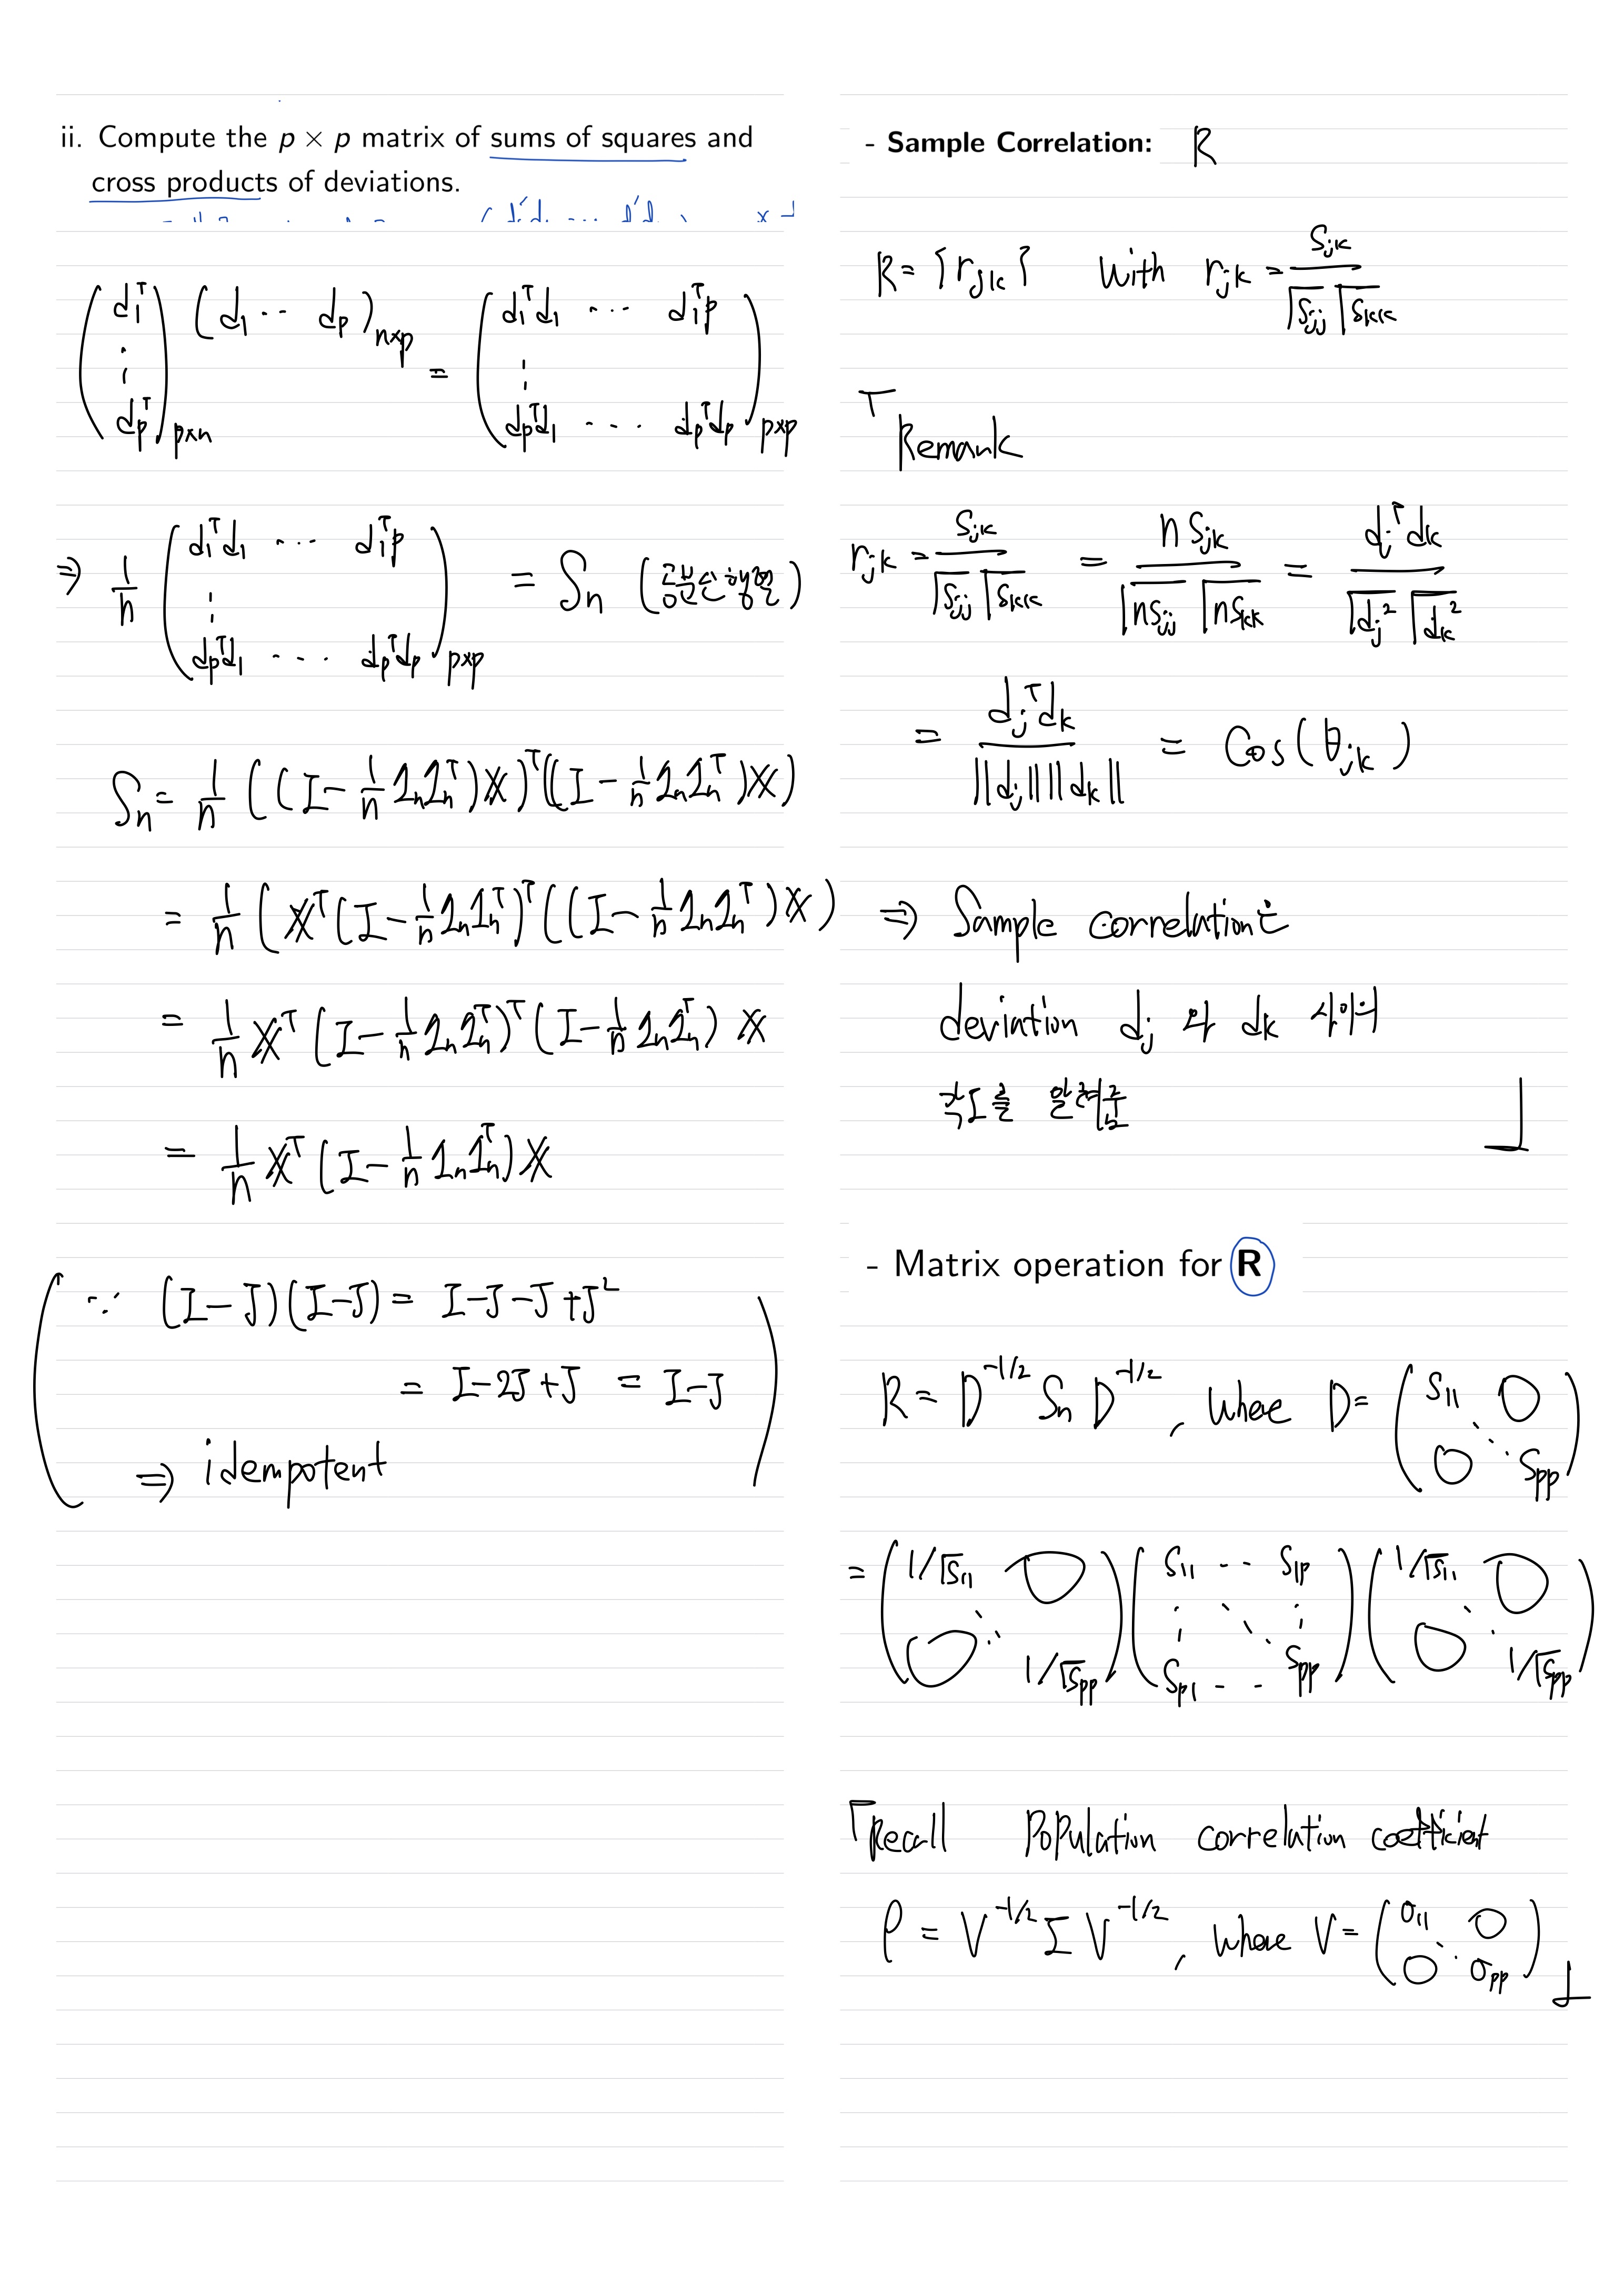 ii. Compute the p × p matrix of sums of squares and
cross products of deviations.
(d₁ᵀ ⋮ dₚᵀ)ₚₓₙ (d₁ ⋯ dₚ)ₙₓₚ = (d₁ᵀd₁ ⋯ d₁ᵀp ⋮ dₚᵀd₁ ⋯ dₚᵀdₚ)ₚₓₚ
⇒ 1/n (d₁ᵀd₁ ⋯ d₁ᵀp ⋮ dₚᵀd₁ ⋯ dₚᵀdₚ)ₚₓₚ = Sₙ (공분산행렬)
Sₙ = 1/n ((I - 1/n 1ₙ1ₙᵀ)𝕏)ᵀ((I - 1/n 1ₙ1ₙᵀ)𝕏)
= 1/n (𝕏ᵀ(I - 1/n 1ₙ1ₙᵀ)ᵀ((I - 1/n 1ₙ1ₙᵀ)𝕏)
= 1/n 𝕏ᵀ (I - 1/n 1ₙ1ₙᵀ)ᵀ (I - 1/n 1ₙ1ₙᵀ) 𝕏
= 1/n 𝕏ᵀ (I - 1/n 1ₙ1ₙᵀ)𝕏
∵ (I - J)(I - J) = I - J - J + J²
= I - 2J + J = I - J
⇒ idempotent
- Sample Correlation: R
R = {rⱼₖ} with rⱼₖ = sⱼₖ / √sⱼⱼ √sₖₖ
Remark
rⱼₖ = sⱼₖ / √sⱼⱼ √sₖₖ = n sⱼₖ / √nsⱼⱼ √nsₖₖ = dⱼᵀdₖ / √dⱼ² √dₖ²
= dⱼᵀdₖ / ||dⱼ|| ||dₖ|| = Cos(θⱼₖ)
⇒ Sample correlation는
deviation dⱼ 와 dₖ 사이의
각도를 알려줌
- Matrix operation for R
R = D^(-1/2) Sₙ D^(-1/2), where D = (s₁₁ 0 ⋱ 0 sₚₚ)
= (1/√s₁₁ 0 ⋱ 0 1/√sₚₚ) (s₁₁ ⋯ s₁ₚ ⋮ ⋱ ⋮ sₚ₁ ⋯ sₚₚ) (1/√s₁₁ 0 ⋱ 0 1/√sₚₚ)
Recall Population correlation coefficient
ρ = V^(-1/2) Σ V^(-1/2), where V = (σ₁₁ 0 ⋱ 0 σₚₚ)